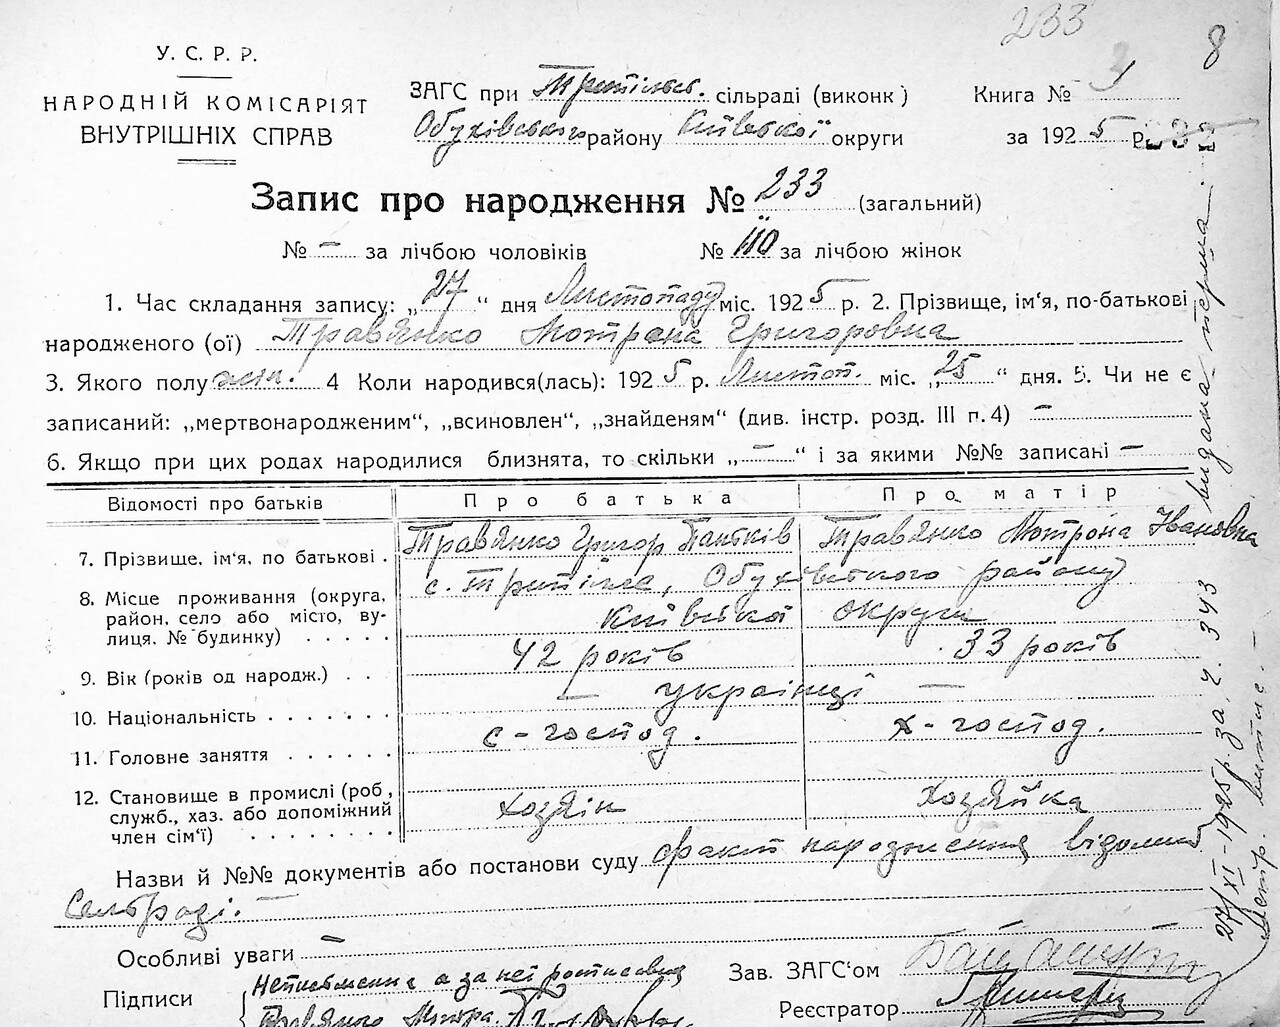 233
8
У. С. Р. Р.
НАРОДНІЙ КОМІСАРІЯТ
ВНУТРІШНІХ СПРАВ
ЗАГС при Трипільськ. сільраді (виконк) Книга № 3
Обухівського району Київської округи за 1925 р.
Запис про народження № 233 (загальний)
№ – за лічбою чоловіків № 110 за лічбою жінок
1. Час складання запису: „27“ дня Листопаду міс. 1925 р. 2. Прізвище, ім'я, по-батькові
народженого (ої) Травянко Мотрона Григоровна
3. Якого полу жін. 4 Коли народився(лась): 1925 р. Листоп. міс. „25“ дня. 5. Чи не є
записаний: „мертвонародженим“, „всиновлен“, „знайденям“ (див. інстр. розд. III п. 4) –
6. Якщо при цих родах народилися близнята, то скільки „–“ і за якими №№ записані –
Відомості про батьків Про батька Про матір
7. Прізвище, ім'я, по батькові . Травянко Григор Травянко Мотрона Івановна
8. Місце проживання (округа, район, село або місто, вулиця. № будинку) с. Трипілля, Обухівського району
Київської округи
9. Вік (років од народж.) 42 років 33 років
10. Національність – українці –
11. Головне заняття с-господ. х-господ.
12. Становище в промислі (роб, служб., хаз. або допоміжний член сім'ї) хозяїн хозяйка
Назви й №№ документів або постанови суду факт народження відомий
Сельраді. –
Особливі уваги –
Підписи Неписьменна а за неї росписався
Зав. ЗАГС'ом
Реєстратор
27/XI-1925 р. за ч. 343 видана